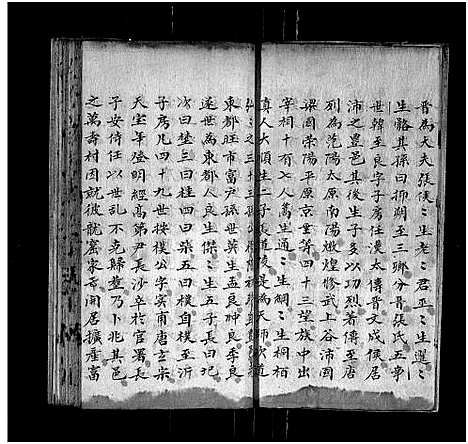 晉為大夫張侯〻生老〻君平〻生趯〻
生骼其孫曰抑朔至三鄉分晉張氏五事
世韓至良字子房任漢太傅晉文成侯居
沛之豊邑其後生子多以功烈著傳至唐
列為范陽太原南陽燉煌修武上谷沛國
梁國滎陽平原京兆等四十三望族中出
宰相十有七人萬生通〻生綱〻生桐栢
真人大順生二子長道陵是為天師次道
東都旺市富尹孫世英生孟良仲良季良
遂世為東都人良生傑〻生五子長曰圮
次曰埜三曰桂四曰柒五曰樸自樸至沂
子房凡四十九世樸樸公字寅甫唐玄宗
天宝年登明經高第尹長沙卒於官署長
子安侍任以世乱不克歸塟乃卜兆其邑
之萬壽村因就彼龍窩家焉開居擴產富